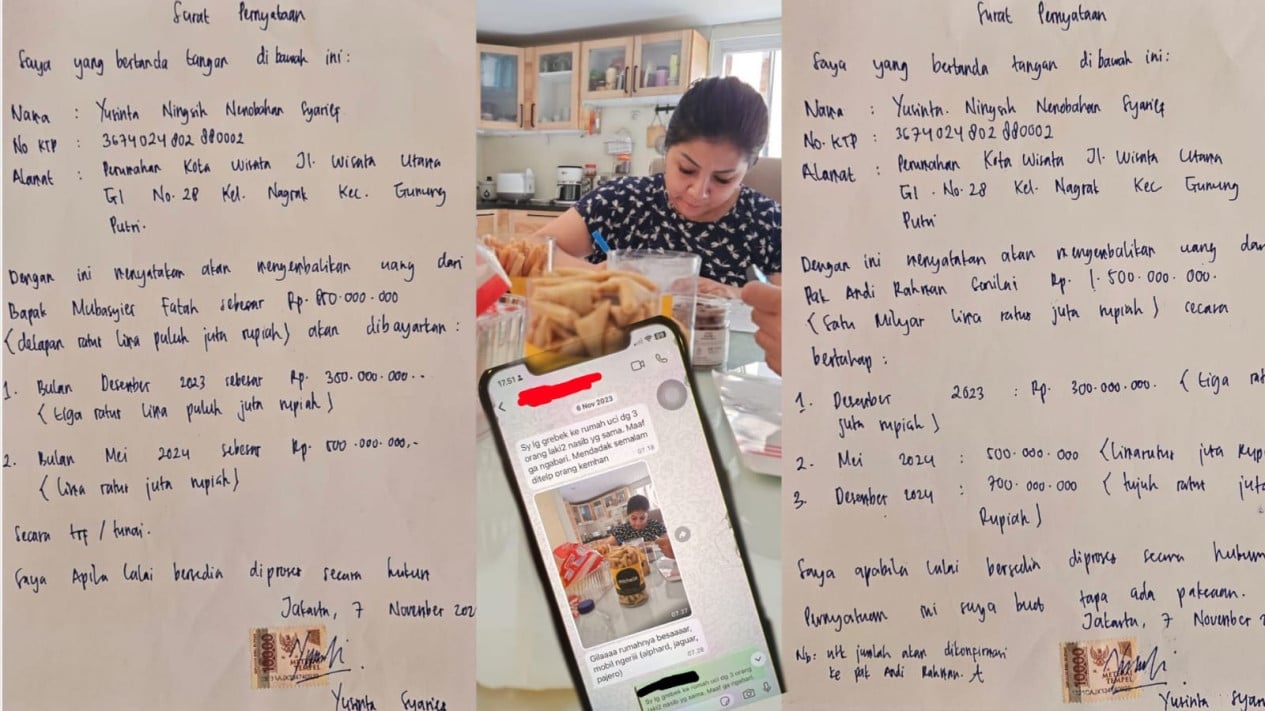 Surat Pernyataan
Saya yang bertanda tangan di bawah ini :
Nama : Yusinta Ningsih Nenobahan Syarief
No KTP : 3674024802880002
Alamat : Perumahan Kota Wisata Jl. Wisata Utama
G1 No. 28 Kel. Nagrak Kec. Gunung
Putri.
Dengan ini menyatakan akan mengembalikan uang dari
Bapak Mubasyier Fatah sebesar Rp. 850.000.000
(delapan ratus lima puluh juta rupiah) akan dibayarkan :
1. Bulan Desember 2023 sebesar Rp. 350.000.000.-
(tiga ratus lima puluh juta rupiah)
2. Bulan Mei 2024 sebesar Rp. 500.000.000,-
(lima ratus juta rupiah)
Secara trf / tunai.
Saya Apila lalai bersedia diproses secara hukum
Jakarta, 7 November 202
10000
METERAI
TEMPEL
Yusinta Syarief
17.51
6 Nov 2023
Sy lg grebek ke rumah uci dg 3
orang laki2 nasib yg sama. Maaf
ga ngabari. Mendadak semalam
ditelp orang kemhan
07.18
07.27
Gilaaaa rumahnya besaaaar,
mobil ngeriii (alphard, jaguar,
pajero)
07.28
Sy lg grebek ke rumah uci dg 3 orang
laki2 nasib yg sama. Maaf ga ngabari.
Surat Pernyataan
Saya yang bertanda tangan di bawah ini :
Nama : Yusinta. Ningsih Nenobahan Syarief
No. KTP : 3674024802880002
Alamat : Perumahan Kota Wisata Jl. Wisata Utama
G1. No. 28 Kel. Nagrak Kec Gunung
Putri
Dengan ini menyatakan akan mengembalikan uang dari
Pak Andi Rahman Senilai Rp. 1.500.000.000.
(Satu Milyar lima ratus juta rupiah) secara
bertahap :
1. Desember 2023 : Rp. 300.000.000. (tiga rat
juta rupiah)
2. Mei 2024 : 500.000.000 (limaratus juta Rup
3. Desember 2024 : 700.000.000 (tujuh ratus juta
Rupiah)
Saya apabila lalai bersedia diproses secara hukum
Pernyataan ini saya buat tanpa ada paksaan.
Jakarta, 7 November 2
Nb: utk jumlah akan dikonfirmasi
ke pak Andi Rahman.
10000
METERAI
TEMPEL
Yusinta Syar